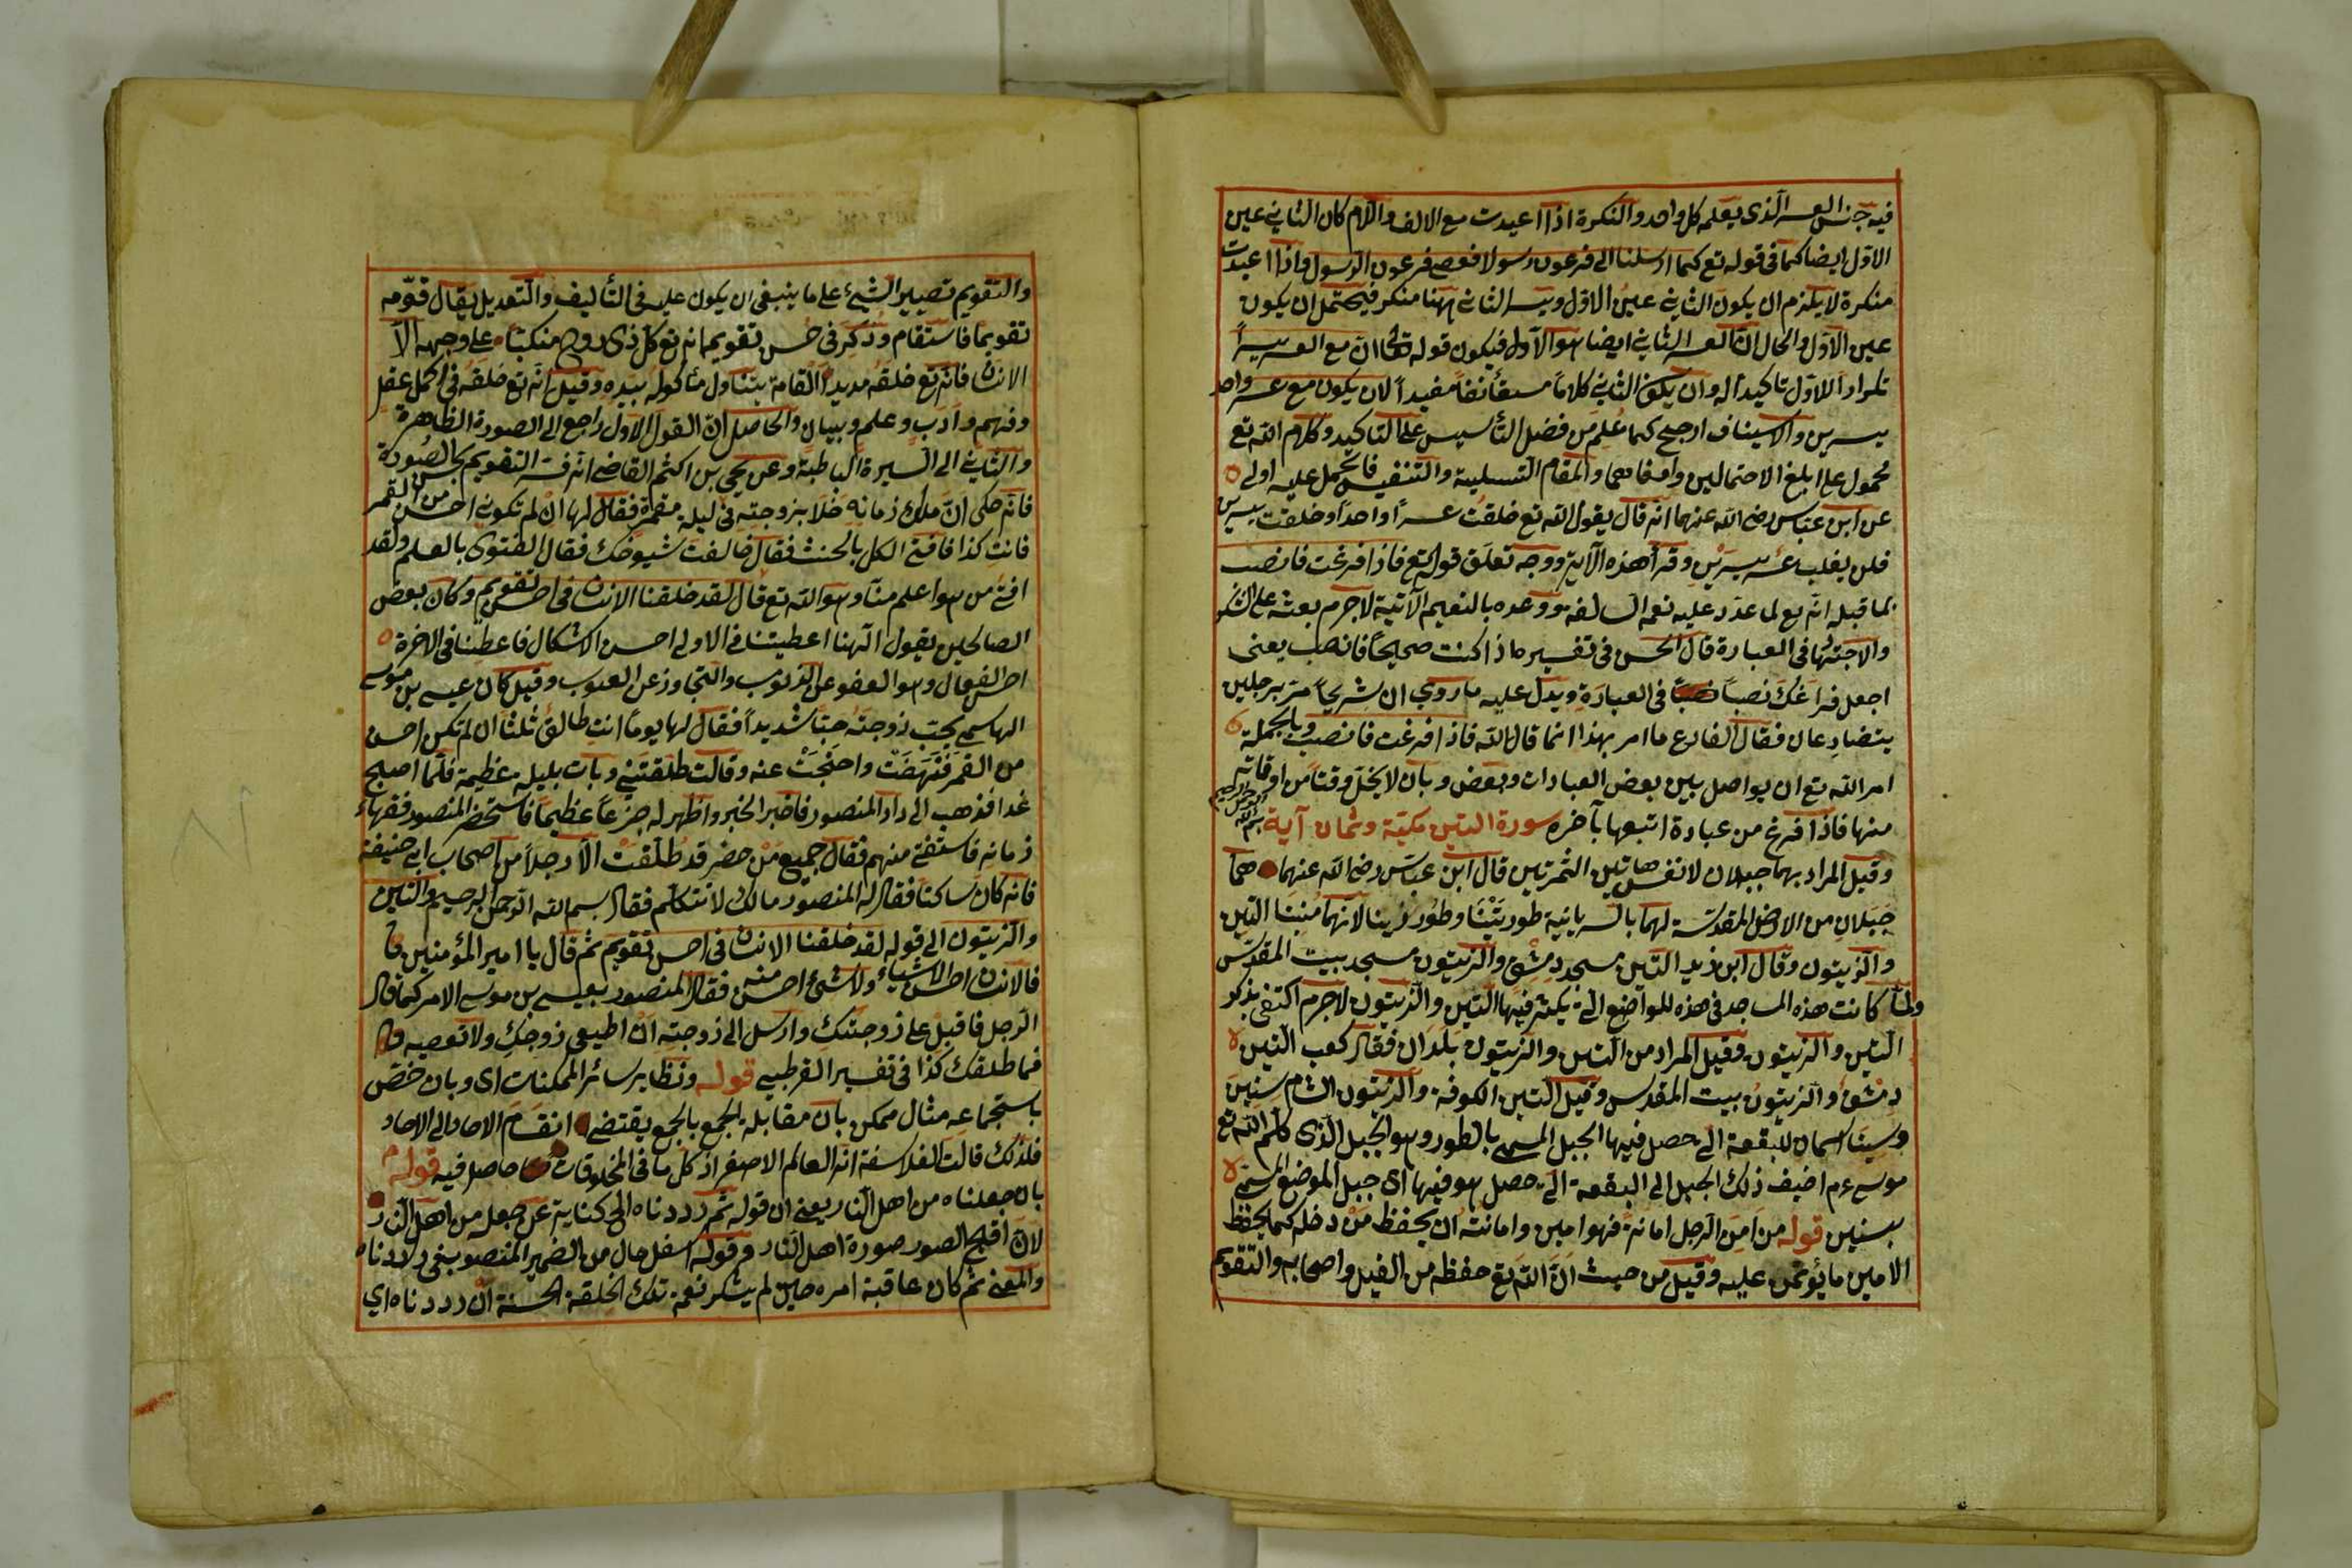 فيه جنس العسر الذى يعلمه كل واحد والنكرة اذا اعيدت مع الالف واللام كان الثانى عين
الاول ايضا كما فى قوله تع كما ارسلنا الى فرعون رسولا فعصى فرعون الرسول واذا اعيدت
منكرة لا يلزم ان يكون الثانى عين الاول ويسر الثانى ههنا منكر فيحتمل ان يكون
عين الاول والحال ان العسر الثانى ايضا هو الاول فيكون قوله تعالى ان مع العسر يسراً
تكراراً للاول تاكيداً له وان يكون الثانى كلاماً مستأنفاً مفيداً لان يكون مع عسر واحد
يسرين والاستيناف ارجح كما علم من فضل التأسيس على التاكيد وكلام الله تع
محمول على ابلغ الاحتمالين والمقام التسلية والتنفيس فالحمل عليه اولى
عن ابن عباس رضى الله عنهما انه قال يقول الله تع خلقت عسراً واحداً وخلقت يسرين
فلن يغلب عسر يسرين وقرأ هذه الآية ووجه تعلق قوله تع فاذا فرغت فانصب
بما قبله انه تع لما عدد عليه نعمه السالفة ووعده بالنعيم الآتية لاجرم بعثه على الشكر
والاجتهاد فى العبادة قال الحسن فى تفسيره اذا كنت صحيحاً فانصب يعنى
اجعل فراغك نصباً فى العبادة ويدل عليه ما روي ان شريحاً مر برجلين
يتصارعان فقال الفارغ ما امر بهذا انما قال الله فاذا فرغت فانصب وبالجملة
امر الله تع ان يواصل بين بعض العبادات وبعض وبان لا يخل وقتاً من اوقاته
منها فاذا فرغ من عبادة اتبعها بآخره سورة التين مكية وثمان آية بسم الله الرحمن الرحيم
وقيل المراد بهما جبلان لا نفس هاتين الثمرتين قال ابن عباس رضى الله عنهما هما
جبلان من الارض المقدسة لهما بالسريانية طور تينا وطور زيتا لانهما منبتا التين
والزيتون وقال ابن زيد التين مسجد دمشق والزيتون مسجد بيت المقدس
ولما كانت هذه المساجد فى هذه المواضع التى يكثر فيها التين والزيتون لاجرم اكتفى بذكر
التين والزيتون وقيل المراد من التين والزيتون بلدان فقال كعب التين
دمشق والزيتون بيت المقدس وقيل التين الكوفة والزيتون الشام سنين
وسينا اسمان للبقعة التى حصل فيها الجبل المسمى بالطور وهو الجبل الذى كلم الله تع
موسى عم اضيف ذلك الجبل الى البقعة التى حصل هو فيها اى جبل الموضع المسمى
بسنين قوله من امن الرجل امانة فهو امين وامانته ان يحفظ من دخله كما يحفظ
الامين ما يؤتمن عليه وقيل من حيث ان الله تع حفظه من الفيل واصحابه والتقويم
والتقويم تصيير الشيء على ما ينبغى ان يكون عليه فى التأليف والتعديل يقال قومه
تقويماً فاستقام وذكر فى حسن تقويمه انه تع كل ذى روح منكباً على وجهه الا
الانسان فانه تع خلقه مديد القامة يتناول مأكوله بيده وقيل انه تع خلقه فى اكمل عقل
وفهم وادب وعلم وبيان والحاصل ان القول الاول راجع الى الصورة الظاهرة
والثانى الى السيرة الباطنة وعن يحيى بن اكثم القاضى انه فسر التقويم بحسن الصورة
فانه حكى ان ملك زمانه خلا بزوجته فى ليلة مقمرة فقال لها ان لم تكونى احسن من القمر
فانت كذا فافتى الكل بالحنث فقال خالفت شيوخك فقال الفتوى بالعلم ولقد
افتى من هو اعلم منا وهو الله تع قال لقد خلقنا الانسان فى احسن تقويم وكان بعض
الصالحين يقول الهنا اعطيتنا فى الاولى احسن الاشكال فاعطنا فى الاخرة
احسن الفعال وهو العفو عن الذنوب والتجاوز عن العيوب وقيل كان عيسى بن موسى
الهاشمى يحب زوجته حباً شديداً فقال لها يوماً انت طالق ثلثاً ان لم تكن احسن
من القمر فنهضت واحتجبت عنه وقالت طلقتنى وبات بليلة عظيمة فلما اصبح
غدا فذهب الى دار المنصور فاخبر الخبر واظهر له جزعاً عظيماً فاستحضر المنصور فقهاء
زمانه فاستفتى منهم فقال جميع من حضر قد طلقت الا رجلاً من اصحاب ابى حنيفة
فانه كان ساكتاً فقال له المنصور مالك لا تتكلم فقال بسم الله الرحمن الرحيم والتين
والزيتون الى قوله لقد خلقنا الانسان فى احسن تقويم ثم قال يا امير المؤمنين
فالانسان احسن الاشياء ولا شىء احسن منه فقال المنصور بعيسى بن موسى الامر كما قال
الرجل فاقبل على زوجتك وارسل الى زوجته ان اطيعى زوجك ولا تعصيه
فما طلقك كذا فى تفسير القرطبى قوله ونظاير سائر الممكنات اى وبان خص
باستجماعه مثال ممكن بان مقابلة الجمع بالجمع يقتضى انقسام الاحاد الى الاحاد
فلذلك قالت الفلاسفة انه العالم الاصغر اذ كل ما فى المخلوقات حاصل فيه قوله
بان جعلناه من اهل النار يعنى ان قوله ثم رددناه الخ كناية عن جعله من اهل النار
لان اقبح الصور صورة اهل النار وقوله اسفل حال من الضمير المنصوب فى رددناه
والمعنى ثم كان عاقبة امره حين لم يشكر نعمة تلك الخلقة الحسنة ان رددناه اي